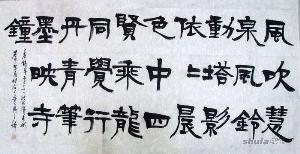 風吹慧
泉風鈴
動塔影
依二晨
色中四
賢乘龍
同覺行
丹青筆
墨映寺
鐘